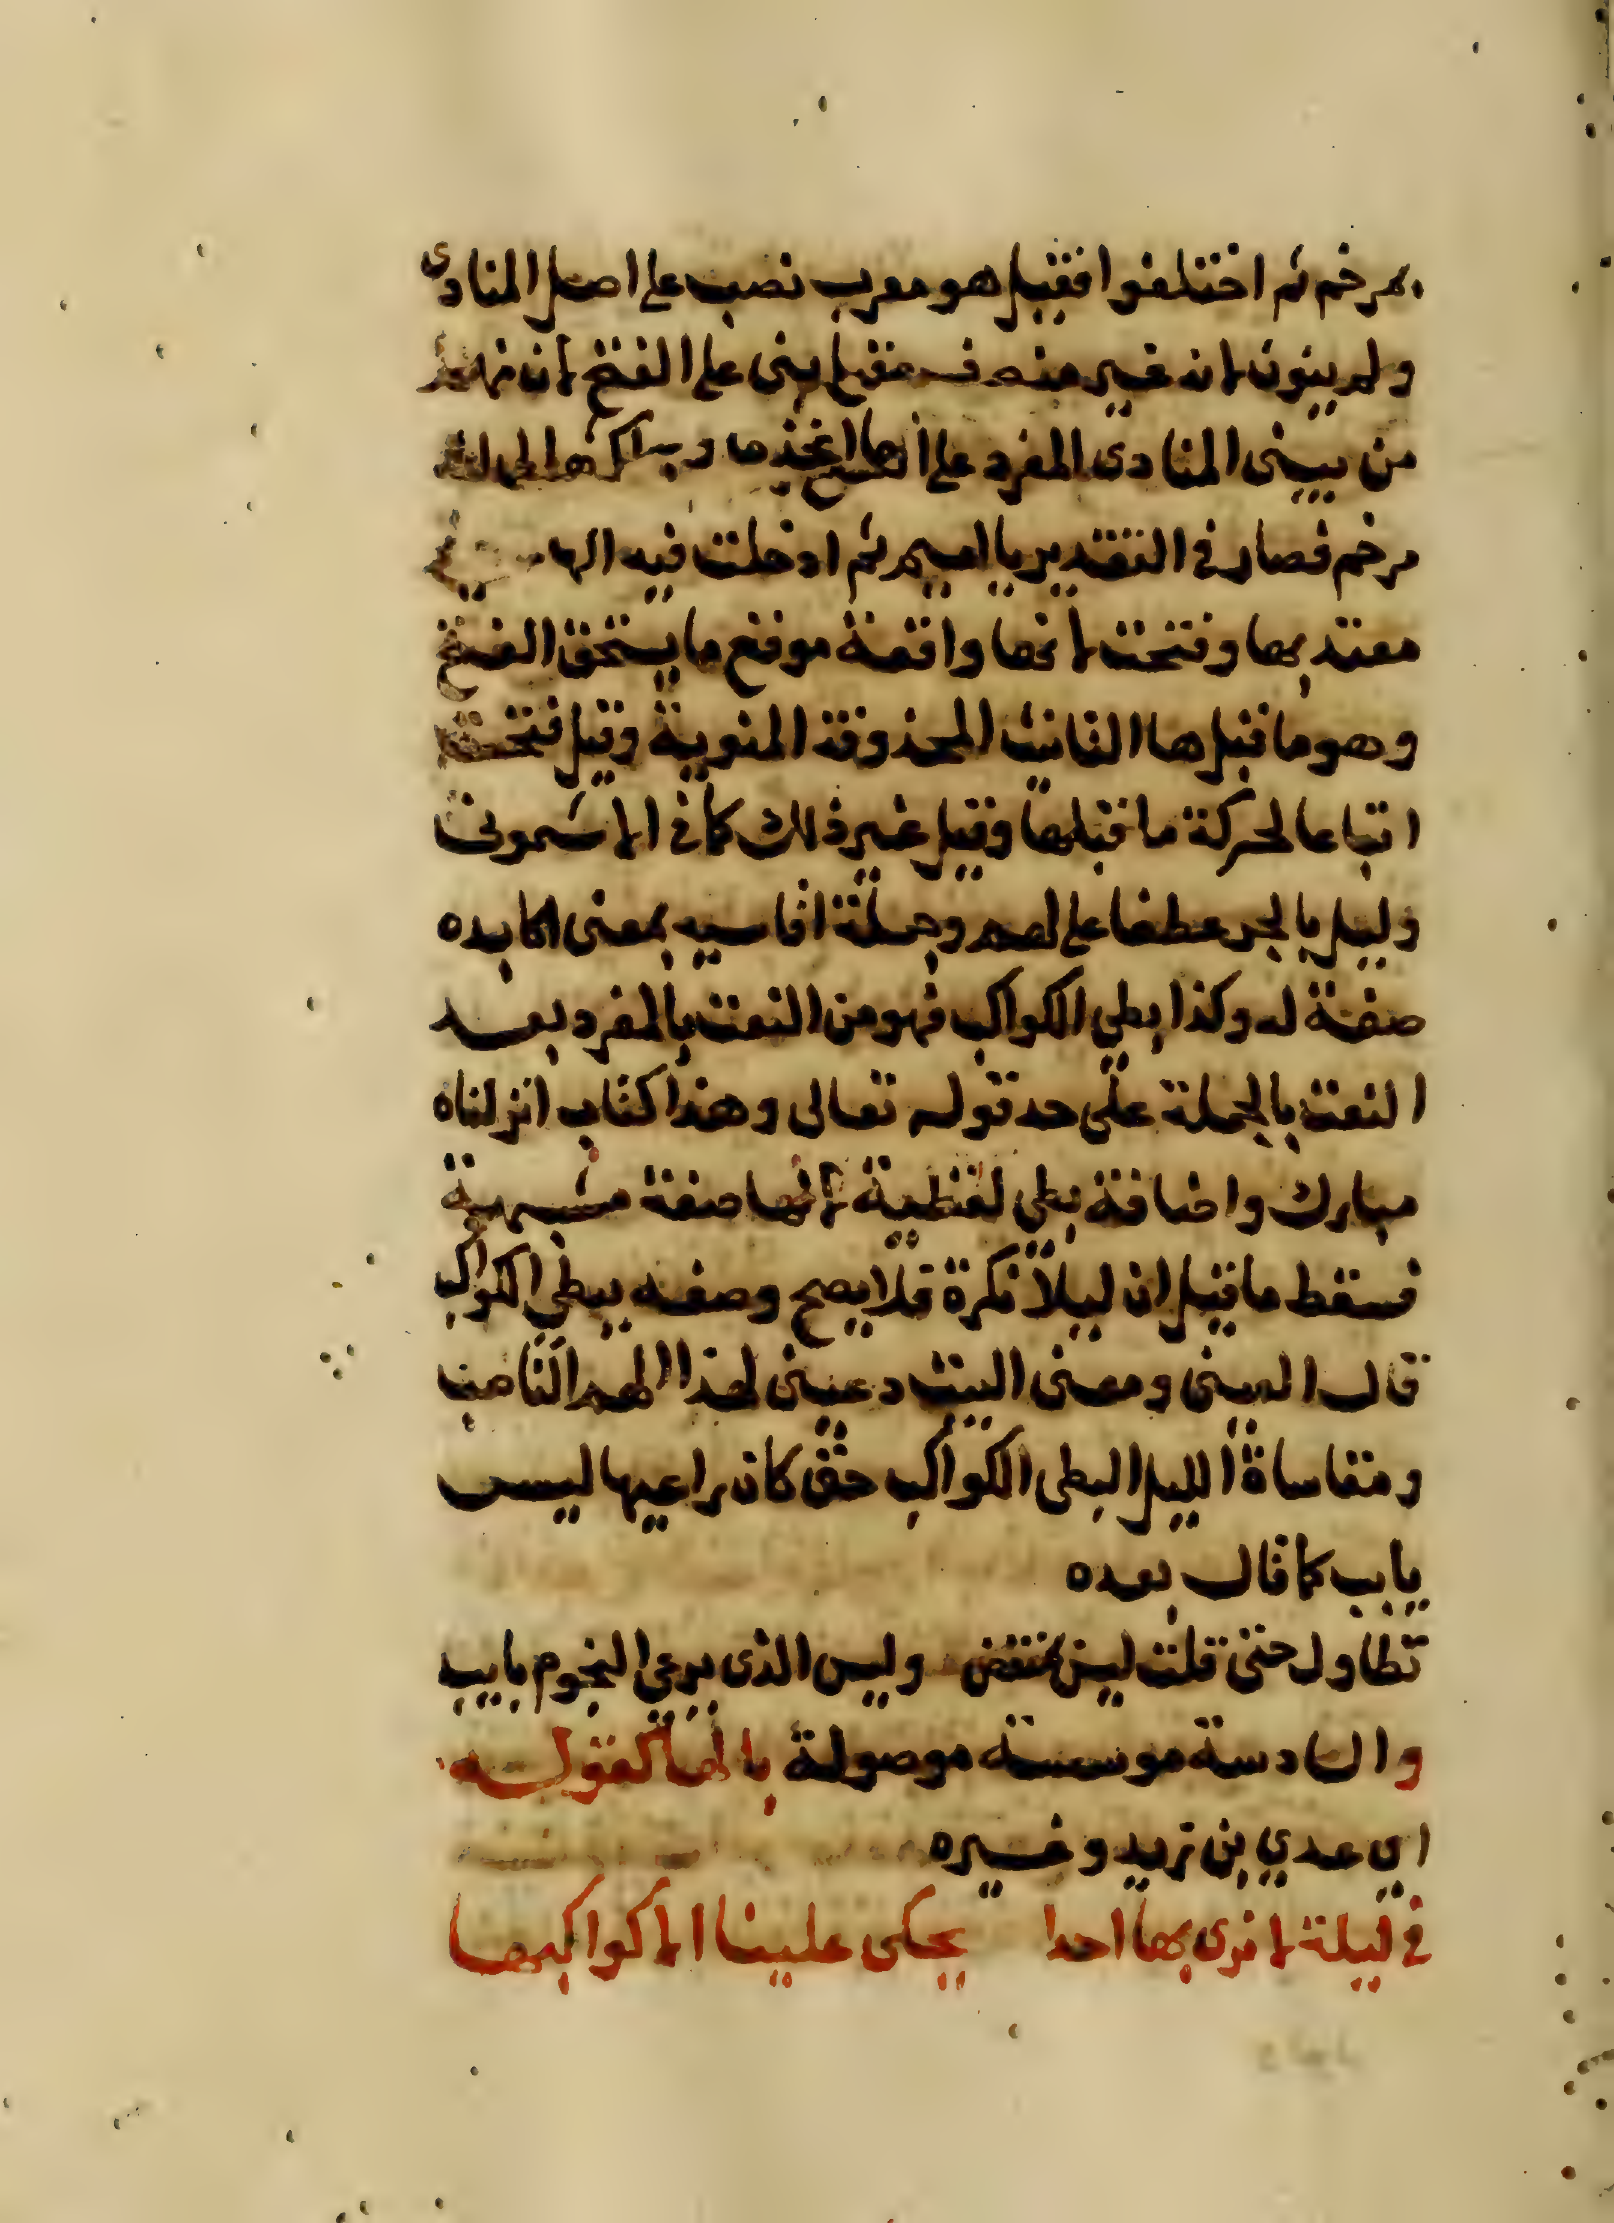 مرخم ثم اختلفوا فقيل هو معرب نصب على اصل المنادى
ولم ينون لانه غير منصرف وقيل بنى على الفتح لان منهم
من يبنى المنادى المفرد على
مرخم فصار فى التقدير يا اميم ثم ادخلت فيه الها غير
معتد بها وفتحت لانها واقعة موقع ما يستحق الفتح
وهو ما قبل ها التانيث المحذوفة المنوية وقيل فتحت
اتباعا لحركة ما قبلها وقيل غير ذلك كما فى الاشمونى
وليل بالجر عطفا على لهم وجملة اقاسيه بمعنى اكابده
صفة له وكذا بطي الكواكب فهو من النعت بالمفرد بعد
النعت بالجملة على حد قوله تعالى وهذا كتاب انزلناه
مبارك واضافة بطي لفظية لانها صفة مشبهة
فسقط ما قيل ان ليلا نكرة فلا يصح وصفه ببطي الكواكب
قال العينى ومعنى البيت دعينى لهذا الهم الناصب
ومقاساة الليل البطى الكواكب حتى كان راعيها ليس
يايب كما قال بعده
تطاول حتى قلت ليس بمنقض وليس الذى يرعى النجوم بايب
والسادسة موسسة موصولة بالها كقوله
اي عدي بن زيد وغيره
فى ليلة لا نرى بها احدا يحكى علينا الا كواكبها